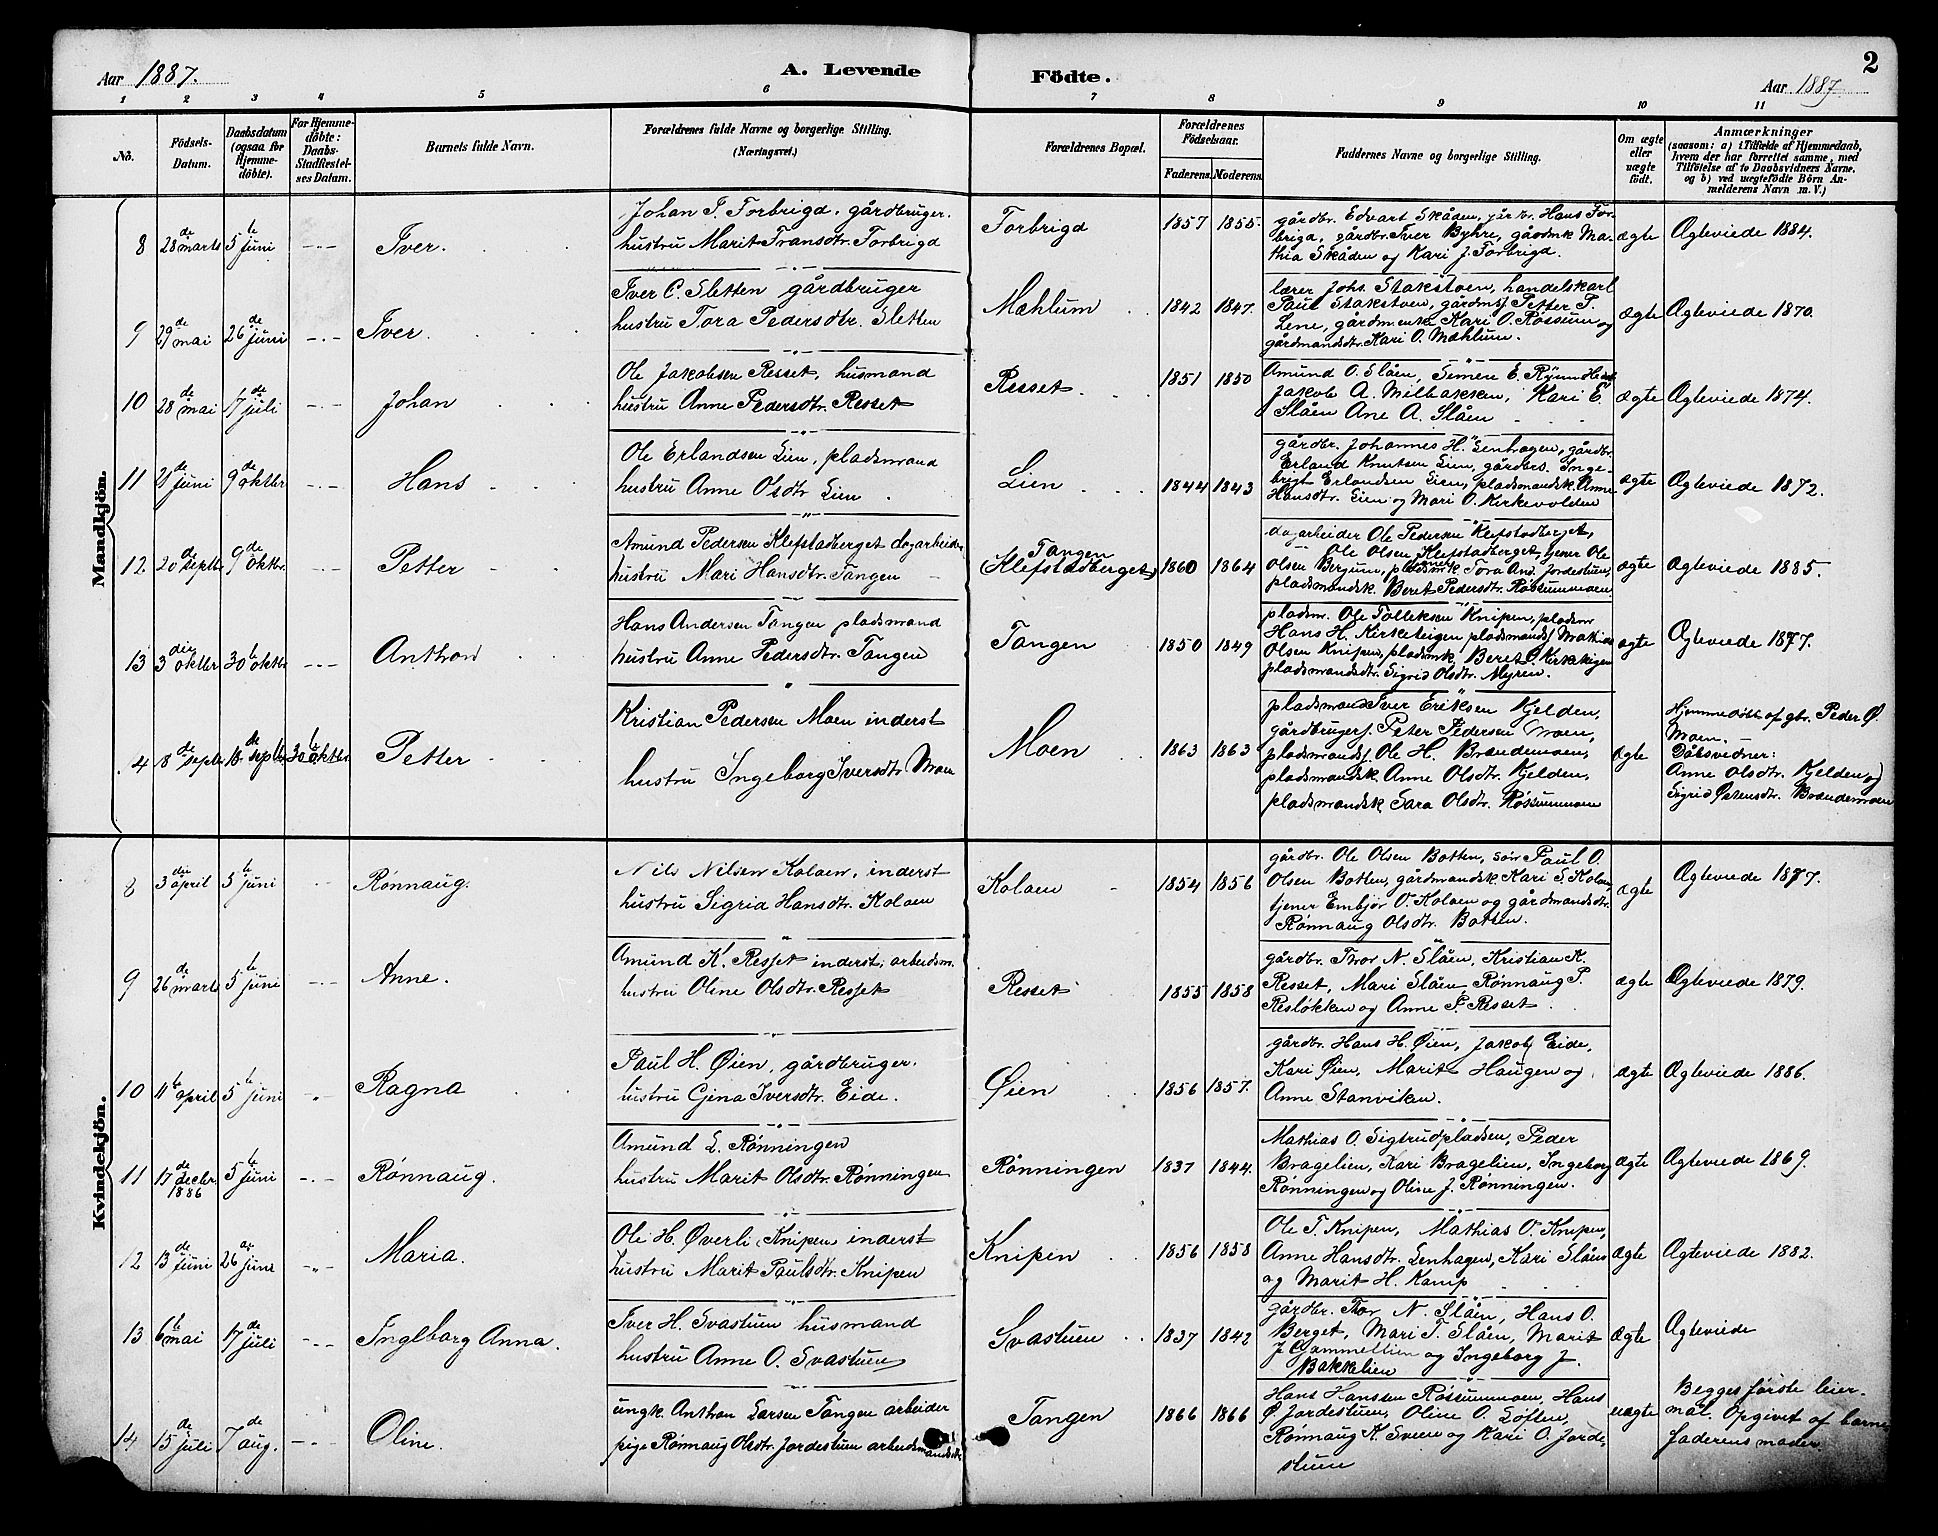 Aar 1887. A. Levende Födte. Aar 1887. 2
1 2 3 4 5 6 7 8 9 10 11
No. Födsels-Datum. Daabsdatum (ogsaa for Hjemmedöbte). For Hjemmedöbte: Daabs-Stadfestelses Datum. Barnets fulde Navn. Forældrenes fulde Navne og borgerlige Stilling. (Næringsvei.) Forældrenes Bopæl. Forældrenes Födselsaar. Faderens. Moderens. Faddernes Navne og borgerlige Stilling. Om ægte eller uægte födt. Anmærkninger (saasom: a) i Tilfælde af Hjemmedaab, hvem der har forrettet samme, med Tilföielse af to Daabsvidners Navne, og b) ved uægtefödte Börn Anmelderens Navn m. V.)
Mandkjön.
8 28de marts 5te juni -.- Iver.
Johan T. Forbrigd, gårdbruger.
hustru Marit Fransdtr. Forbrigd
Forbrigd 1857 1855.
gårdbr. Edvart Skåden, går br. Hans For-
brigd, gårdbr. Iver Byhre, gårdmk Ma-
thia Skåden og Kari J. Forbrigd.
ægte Ægteviede 1884.
9 29de mai 26de juni -.- Iver.
Iver C. Sletten gårdbruger
hustru Tora Pedersdtr. Sletten
Mæhlum 1842 1847.
lærer Johs. Stakstoen, handelskarl
Paul Stakstoen, gårdms Petter P.
Lene, gårdmensk Kari O. Røssum og
gårdmandsdtr. Kari O. Mæhlum.
ægte Ægteviede 1870.
10 28de mai 17de juli -.- Johan
Ole Jakobsen Resset, husmand
hustru Anne Pedersdtr. Resset
Resset 1851 1850
Amund O. Slåen, Simen E.
Jakob A. Milbakken, Kari E.
Slåen Ane A. Slåen
ægte Ægteviede 1874.
11 21de juni 9de oktbr -.- Hans
Ole Erlandsen Lien, pladsmand
hustru Anne Olsdtr Lien
Lien 1844 1843
gårdbr. Johannes H. Lenhagen, gårdbr.
Erland Knutsen Lien, gårders. Inge-
brigt Erlandsen Lien, pladsmandsk. Anne
Hansdtr. Lien og Mari O. Kirkevolden
ægte Ægteviede 1872.
12. 20de septbr 9de oktbr. -.- Petter
Amund Pedersen Klefstadberget dagarbeider
hustru Mari Hansdtr. Tangen
Tangen
(Klefstadberget) 1860 1864
dagarbeider Ole Pedersen Klefstadberget,
Ole Olsen Klefstadberget, tjener Ole
Olsen Bergum, pladsmk Tora And. Jordestuen,
pladsmandsk. Beret Pedersdtr. Røssummoen
ægte Ægteviede 1885.
13 3die oktbr 30te oktbr. -.- Anthon
Hans Andersen Tangen pladsmand
hustru Anne Pedersdtr. Tangen
Tangen 1850 1849
pladsm. Ole Tolleksen Knipen, pladsm
Hans H. Kirketeigen pladsmands Mathias
Olsen Knipen, pladsmk. Beret O. Kirketeigen
pladsmandsdtr. Sigrid Olsdtr. Myren.
ægte Ægteviede 1877.
14 18de septbr 18de septbr. 30te oktbr. Petter
Kristian Pedersen Moen inderst
hustru Ingeborg Iversdtr. Moen
Moen 1863 1863
pladsmand Iver Eriksen Kjelden,
gårdbrugers. Peter Pedersen Moen,
pladsmands. Ole H. Brændemoen,
pladsmandsk. Anne Olsdtr. Kjelden,
pladsmandsk Sara Olsdtr. Røssummoen
ægte
Hjemmedöbt af gbr. Peder Ø.
Moen.
Dåbsvidner:
Anne Olsdtr. Kjelden og
Sigrid Østensdtr. Brændemoen
Kvindekjön.
8 3die april 5te juni Rønnaug.
Nils Nilsen Koloen, inderst
hustru Sigrid Hansdtr. Koloen
Koloen 1854 1856
gårdbr. Ole Olsen Botten, sön Paul O.
Olsen Botten, gårdmandsk. Kari S. Koloen
tjener Embjør O. Koloen og gårdmandsdtr.
Rønnaug Olsdtr. Botten.
ægte Ægteviede 1877.
9 26de marts 5te juni -.- Anne.
Amund K. Resset inderst; arbeidsm.
hustru Oline Olsdtr. Resset
Resset 1855 1858
gårdbr. Thor N. Slåen, Kristian K.
Resset, Mari Slåen, Rønnaug P.
Resløkken og Anne P. Resset
ægte Ægteviede 1879.
10 11te april 5te juni Ragna
Paul H. Øien, gårdbruger.
hustru Gjena Iversdtr. Eide.
Øien 1856 1857.
gårdbr. Hans H. Øien, Jakob Eide,
Kari Øien, Marit Haugen og
Anne Stanviken.
ægte Ægteviede 1886.
11 17de decbr. 1886 5te juni -.- Rønnaug.
Amund L. Rønningen
hustru Marit Olsdtr. Rønningen
Rønningen 1837 1844.
Mathias O. Sigstrudpladsen, Peder
Bragelien, Kari Bragelien, Ingeborg
Rønningen og Oline J. Rønningen.
ægte Ægteviede 1869.
12 13de juni 26de juni Maria.
Ole H. Øverli, Knipen inderst
hustru Marit Paulsdtr. Knipen
Knipen 1856 1858
Ole T. Knipen, Mathias O. Knipen,
Anne Hansdtr. Lenhagen, Kari Slåen
og Marit H. Kamp
ægte Ægteviede 1882.
13 6te mai 17de juli -.- Ingeborg Anna.
Iver H. Svastuen husmand
hustru Anne O. Svastuen
Svastuen 1837 1842
gårdbr. Thor N. Slåen, Hans O.
Berget, Mari T. Slåen, Marit
J Gammellien og Ingeborg J.
Bakkelien
ægte Ægteviede
14 15de juli 7de aug. -.- Oline.
ungk. Anthon Larsen Tangen arbeider
pige Rønnaug Olsdtr. Jordestuen arbeidsmandsk
Tangen 1866 1866
Hans Hanssen Røssummoen, Hans
Ø Jordestuen, Oline O. Løften,
Rønnaug K. Sveen og Kari O. Jorde-
stuen
uægte
Begges første leier-
mål. Opgivet af barne-
faderens moder.